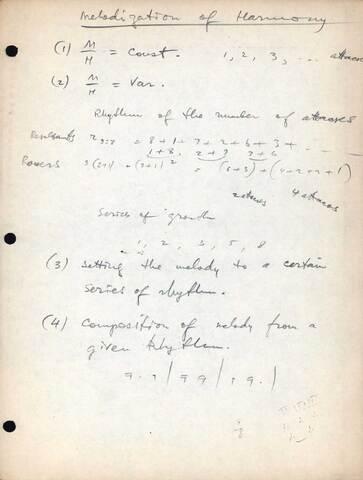 Melodization of Harmony
(1) M/H = Const. 1, 2, 3, ... attacks
(2) M/H = Var.
Rhythm of the number of attacks
Resultants = 8+1+7+2+6+3+ ...
1+8, 2+7, 3+6
Powers = (6+3)+(4+2+2+1)
2 attacks 4 attacks
Series of growth
1, 2, 3, 5, 8
(3) Setting the melody to a certain
series of rhythm.
(4) Composition of melody from a
given rhythm.